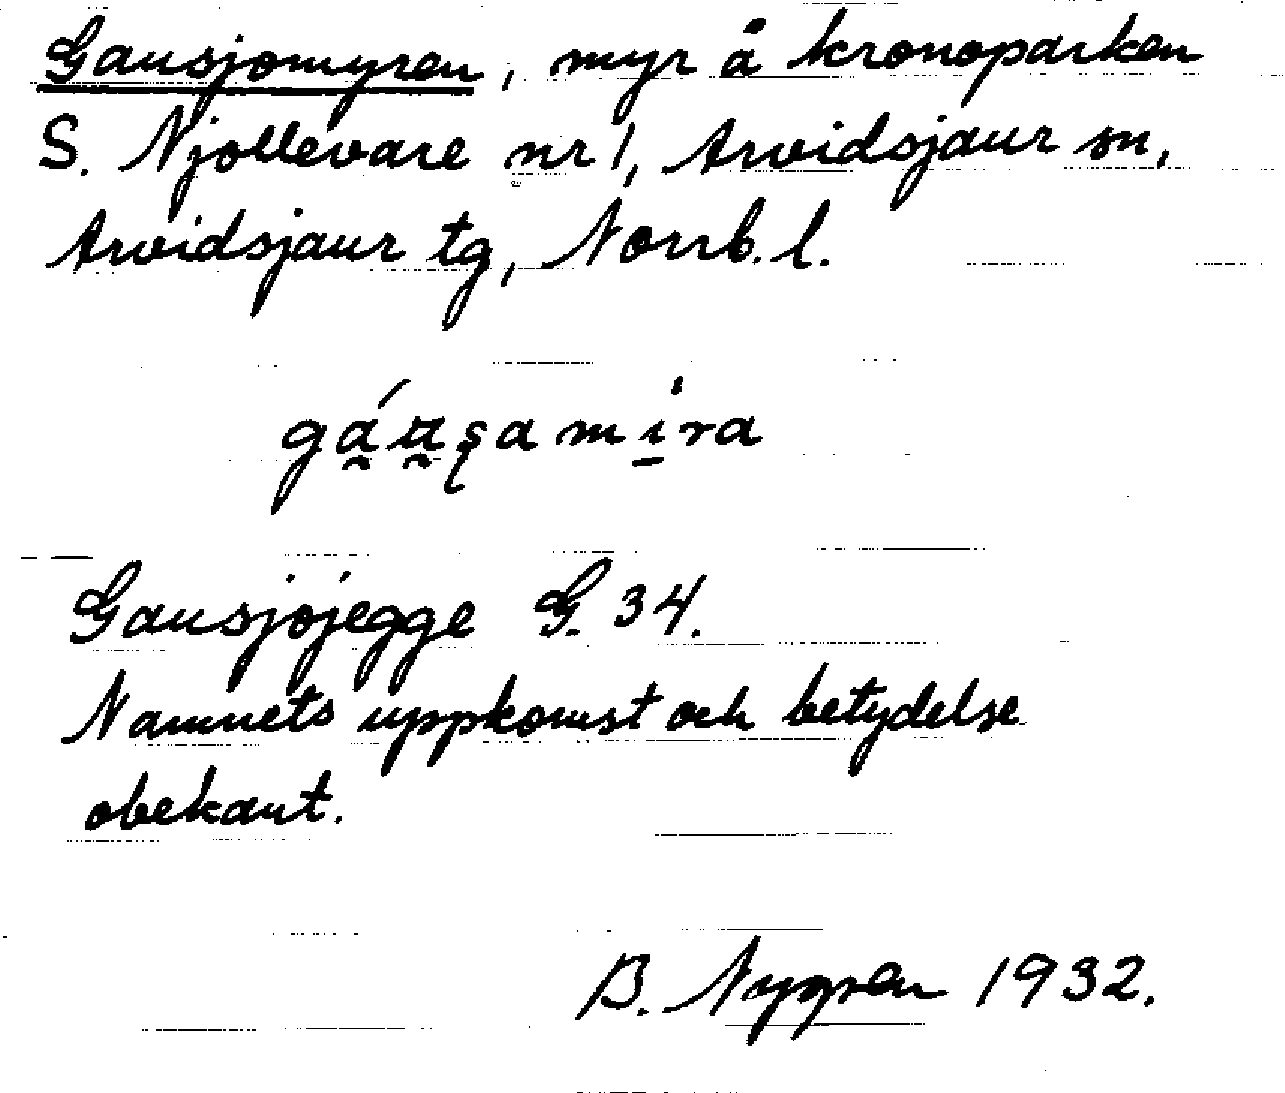 Gausjomyren, myr å kronoparken
S. Njollevare nr 1, Arvidsjaur sn,
Arvidsjaur tg, Norrb. l.
gá̰ṵʂami̱ra
Gausjojegge G. 34.
Namnets uppkomst och betydelse
obekant.
B. Nygren 1932.